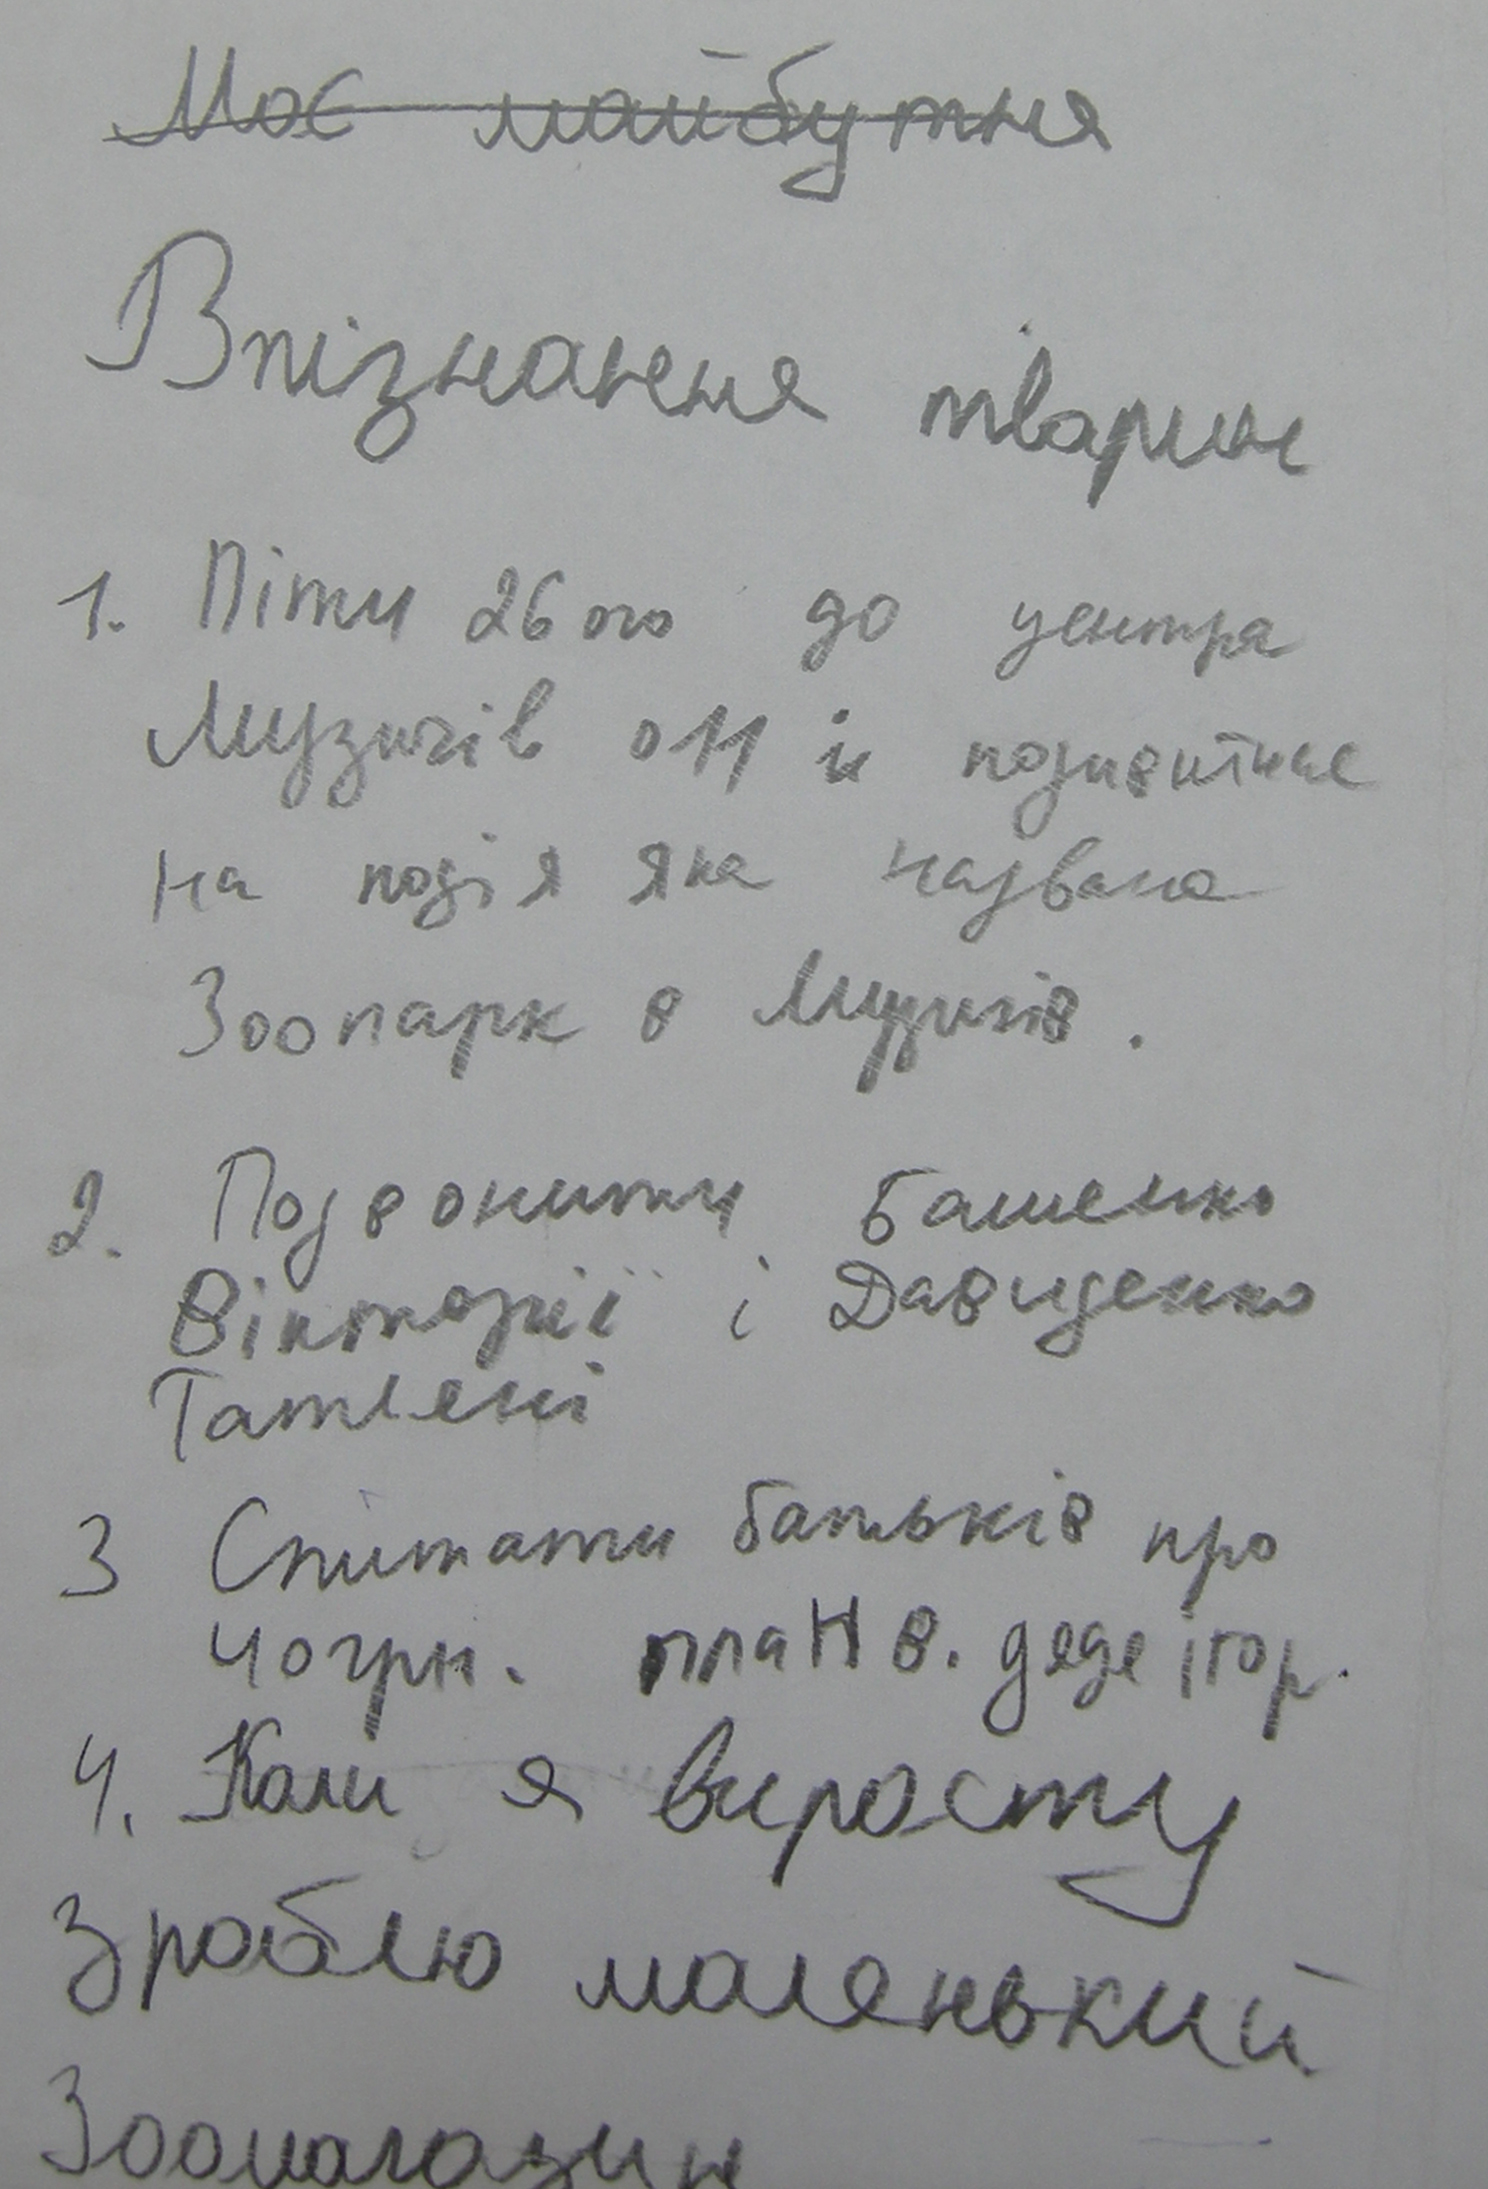 Моє майбутня
Впізнання тварин
1. Піти 26ого до центра
Музичів о 11 й подивитис
на подія яка названа
Зоопарк в Музичів.
2. Подзвонити Башенко
Вікторії і Давиденко
Татлені
3 Спитати батьків про
40грн. план в. деде ігор.
4. Коли я виросту
Зроблю маленький
Зоомагазин